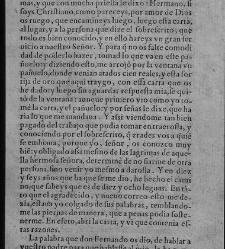 mas, y que con mucha priessa le dixo: Hermano, si
soys Christiano, como pareceys, por amor de Dios
os ruego, que encamineys luego, luego esta carta,
al lugar, y a la persona que dize el sobrescrito, que
todo es bien conocido, y en ello hareys vn gran ser
uicio a nuestro Señor. Y para q̃ no os falte comodi
dad de poderlo hazer, tomad lo que va en este pa-
ñuelo: y diziendo esto, me arrojó por la ventana vn
pañuelo, donde venian atados cien reales, y esta sor
tija de oro que aqui traygo, con essa carta que os
he dado: y luego sin aguardar respuesta mia, se qui-
tò de la ventana: aunque primero vio como yo to-
mè la carta, y el pañuelo, y por señas le dixe, que ha
ria lo que me mandaua. Y assi viendome tan bien
pagado del trabajo que podia tomar en traerosla, y
conociendo por el sobrescrito, q̃ erades vos a quiẽ
se embiaua, porque yo, señor, os conozco muy
biẽ: y obligado assi mesmo de las lagrimas de aque-
lla hermosa señora, determinè de no fiarme de otra
persona, sino venir yo mesmo a darosla. Y en diez
y seys años que ha que se me dio, he hecho el cami-
no, que sabeys que es de diez y ocho leguas. En tã-
to que el agradecido, y nueuo correo esto me de-
zia, estaua yo colgado de sus palabras, temblando-
me las piernas de manera, que a penas podia soste-
nerme. En efeto, abri la carta, y vi que contenia es-
tas razones.
La palabra que don Fernando os dio, de hablar a